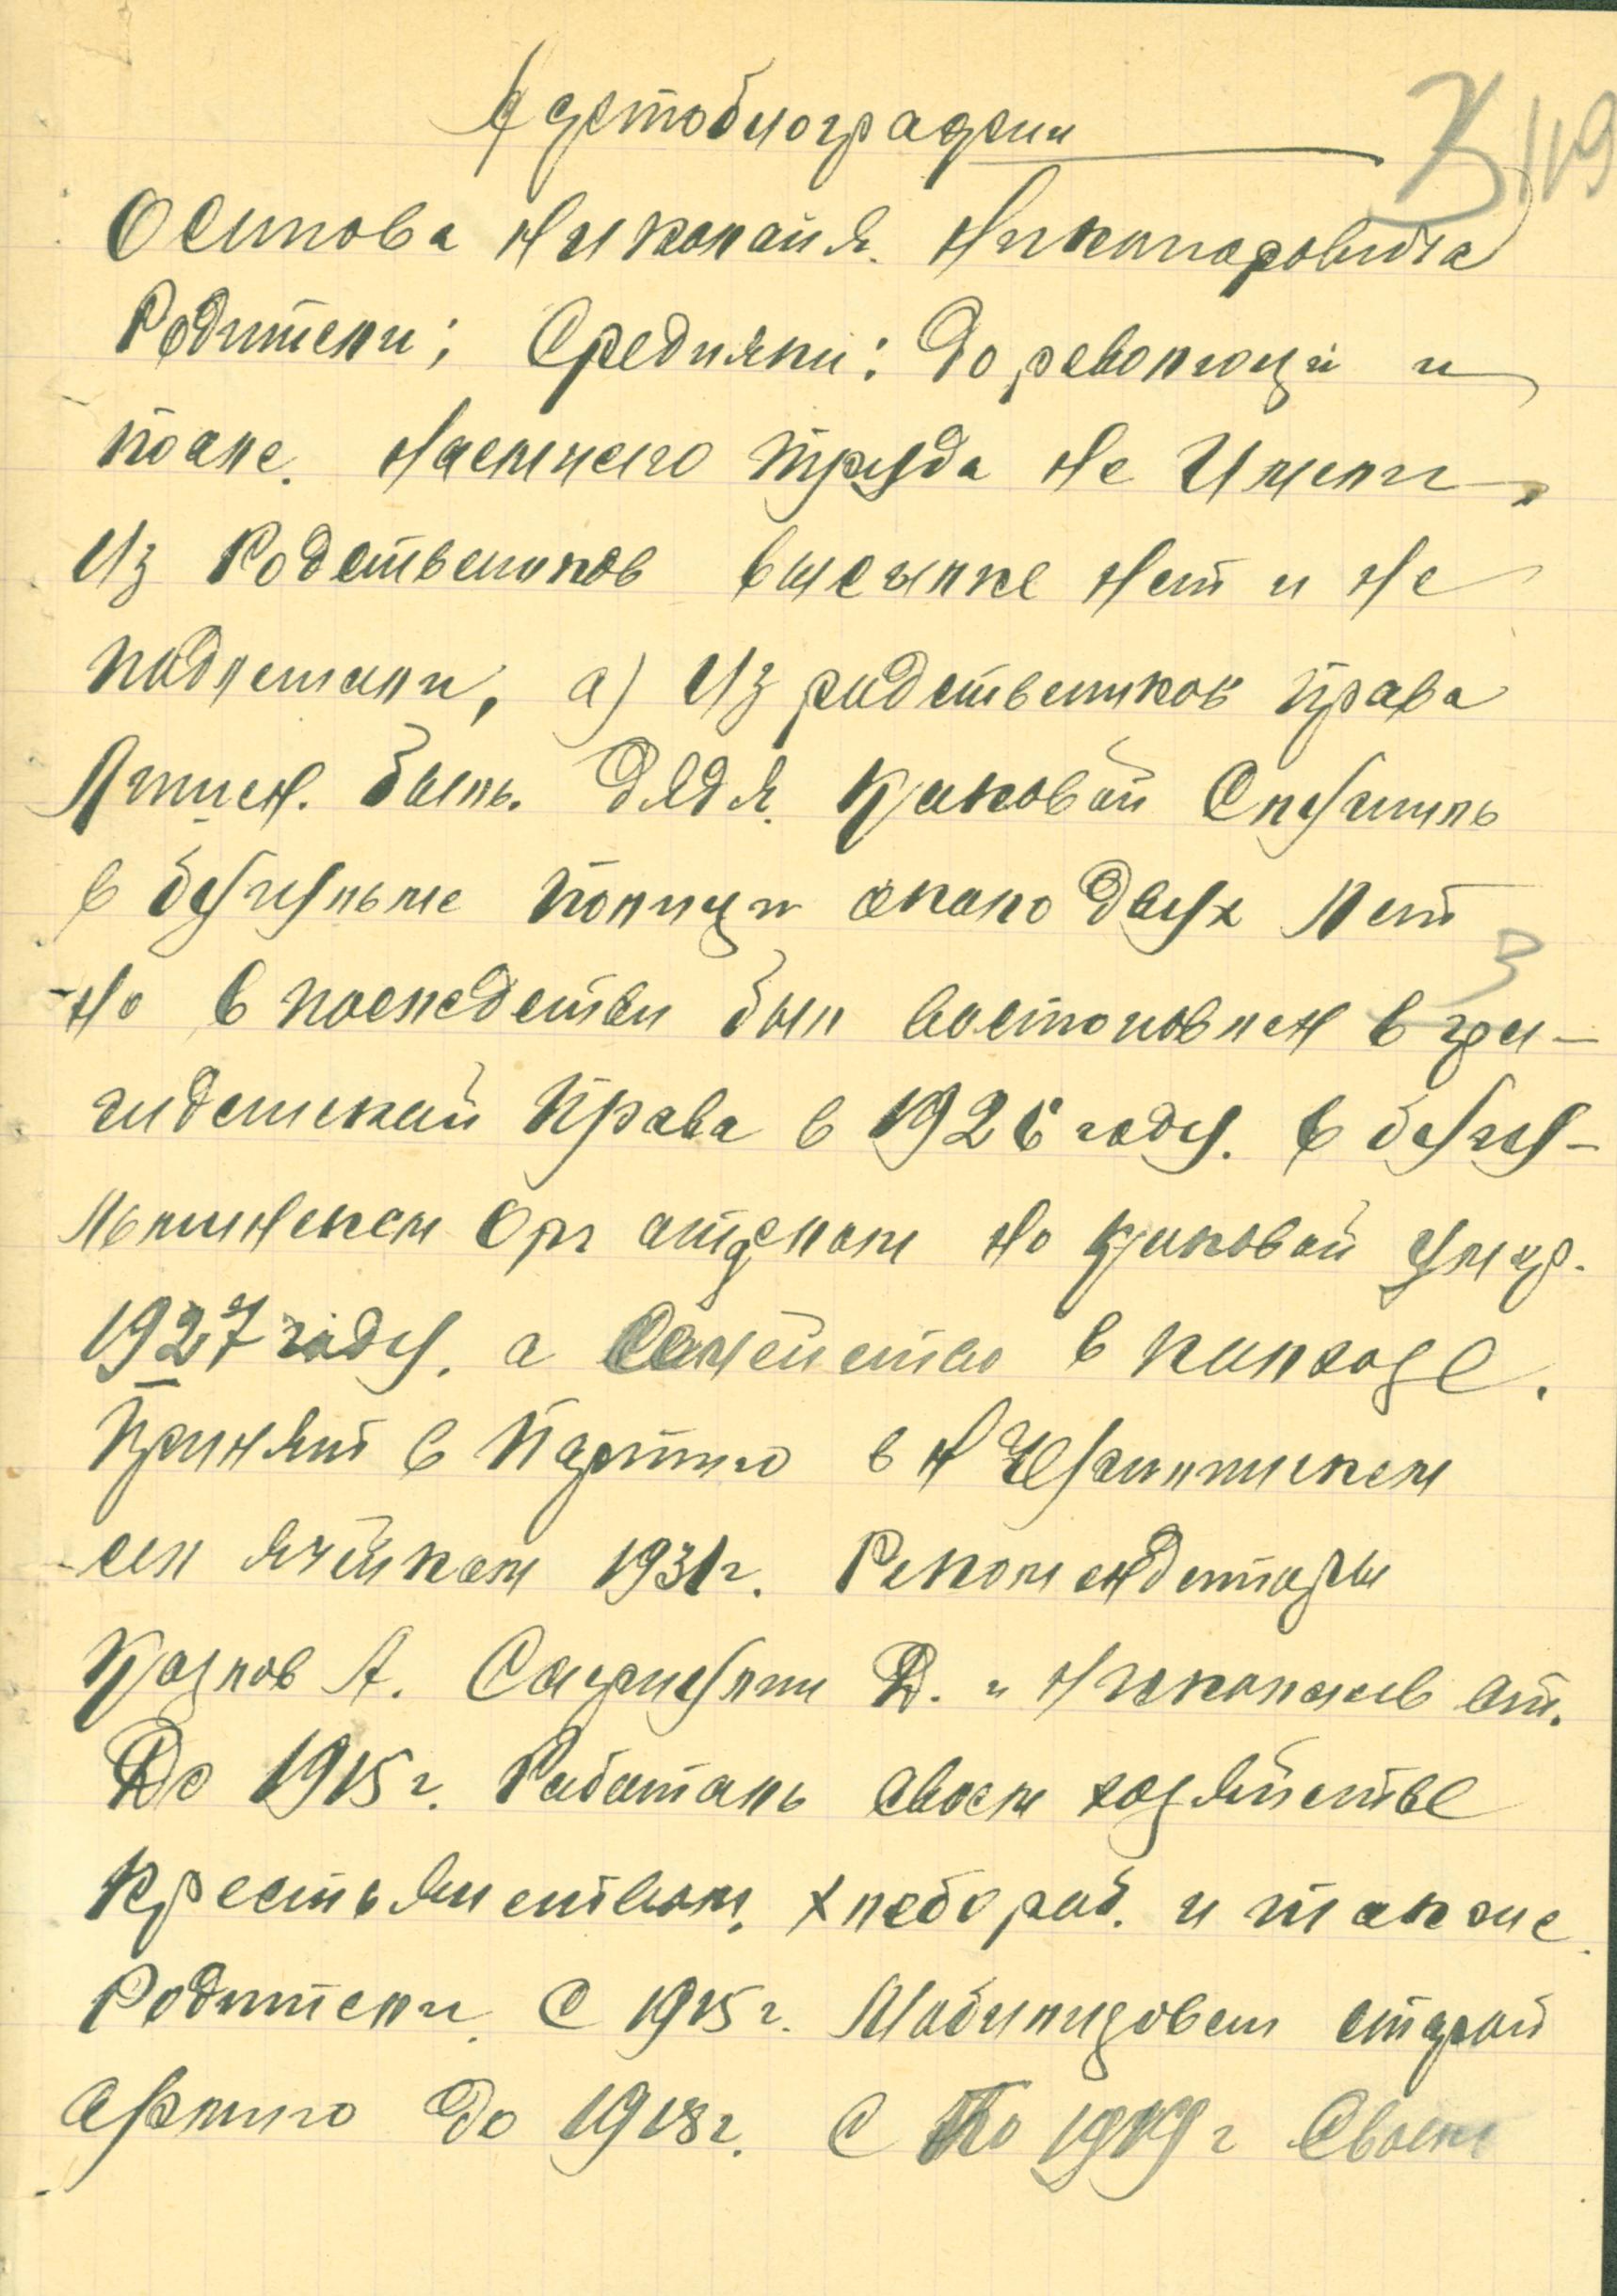 Автобиографии
З 119
Осипова Николайя Никиноровича
Родители; Средняки: До революци и
после. Наемнего труда не Имели
Из Родствеников высылке нет и не
подлежали, а) Из родствеников права
Лишен. быль. Дядя. Кузмовой Служиль
в полици около двух Лет
но в последстви был востоновлен в гра-
жидамской Права в 1926 году. в бугу-
льминском Орг отделом но умир.
1927 году. а Семейство в колхозе.
Принят в Партию в Н
сел ячейком 1931г. Рекомендеторы
А. Д. и Николаев Ст.
До 1915 г. Работаль своем хозяйстве
Крестьянством, хлебороб. и также
Родители. С 1915 г. Мобилизован старой
Армию до 1918 г. С По 1919 г Своем